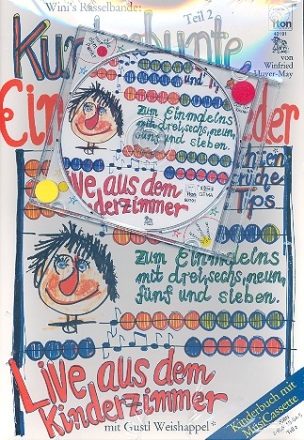 Wini's Rasselbande:
Teil 2
Kunterbunte
von
Winfried
Ein
der
und
zum Einmaleins
mit drei, sechs, neun,
fünf und sieben.
Live aus dem
Kinderzimmer
GEMA
Tips
zum Einmaleins
mit drei, sechs, neun,
fünf und sieben.
Live aus dem
Kinderzimmer
mit Gustl Weishappel
Kinderbuch mit
MusiCassette